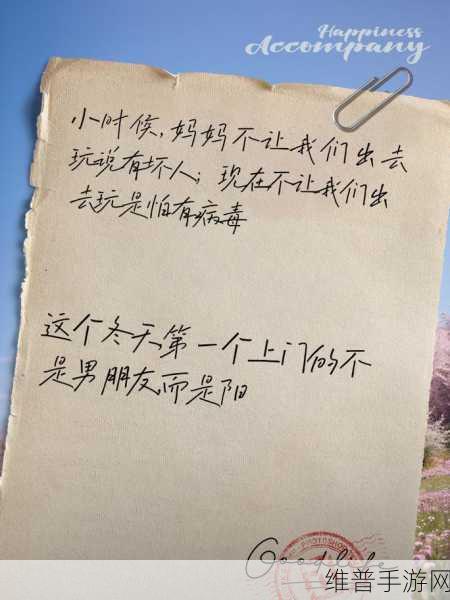 Happiness
Accompany
小时候,妈妈不让我们出去
玩说有坏人;现在不让我们出
去玩是怕有病毒
这个冬天第一个上门的不
是男朋友而是阳
Good life
维普手游网